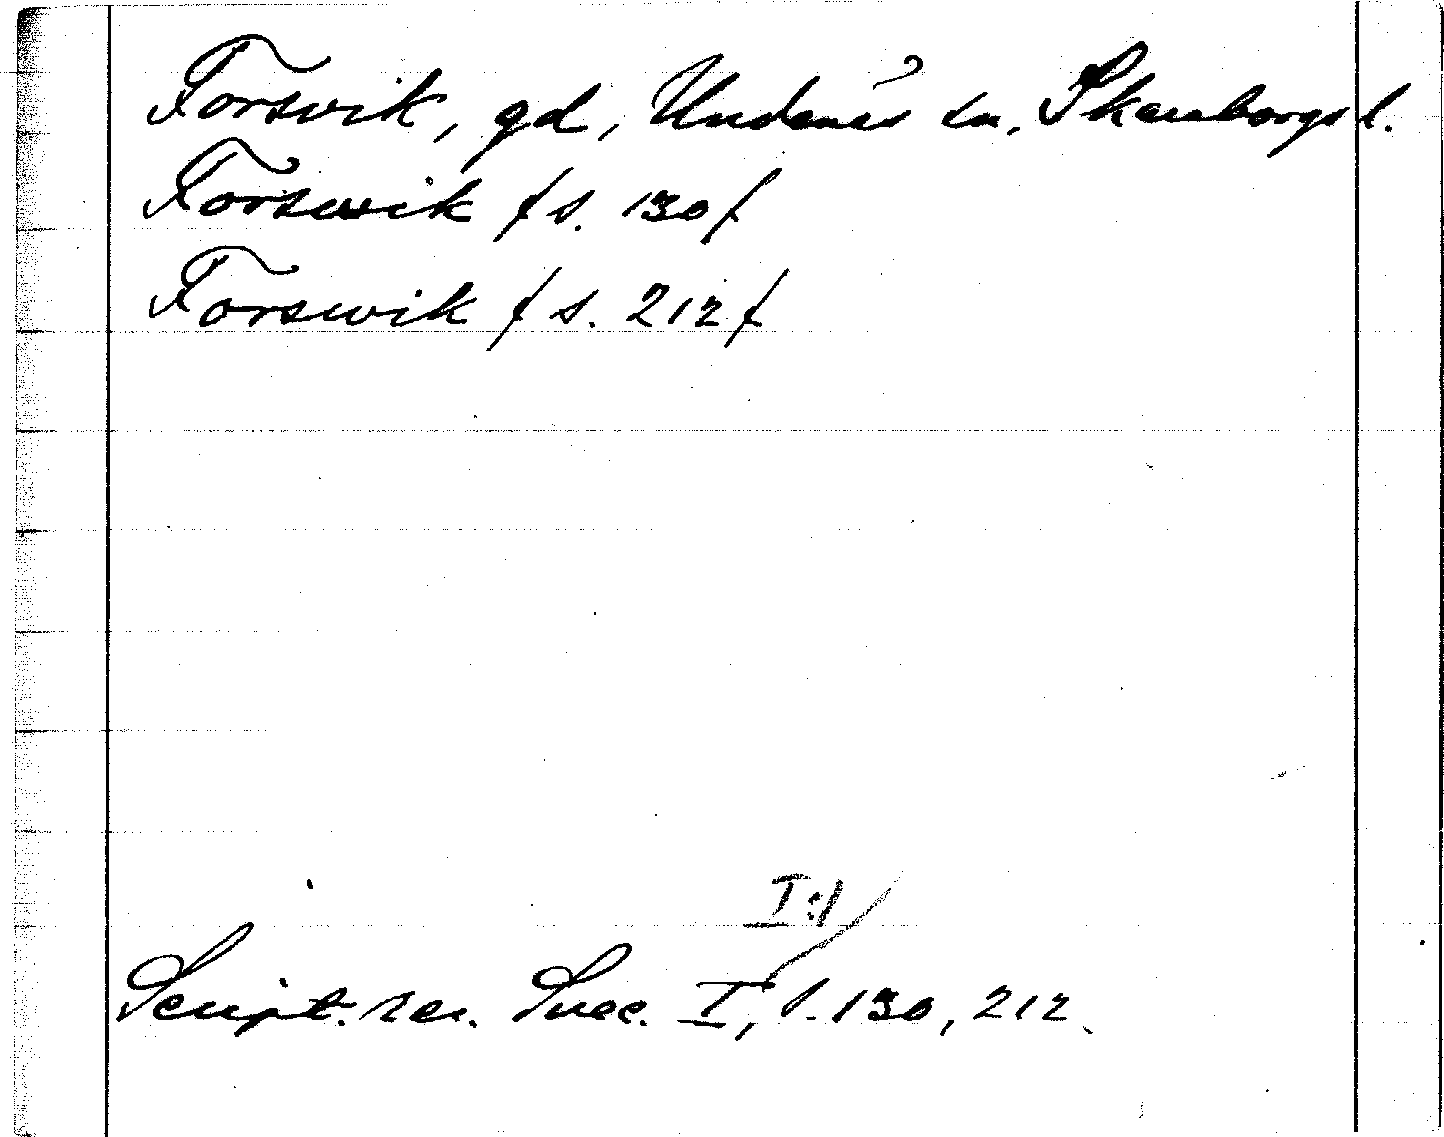 Forsvik, gd, Undenäs sn, Skaraborgs l.
Forswik /s. 130/
Forswik /s. 212/
I:1
Script. rer. Suec. I, s. 130, 212.